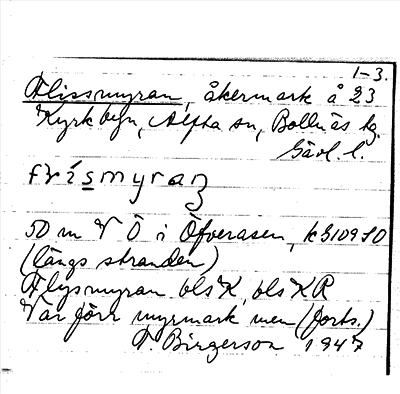 1-3.
Flissmyran, åkermark å 23
Kyrkbyn, Alfta sn, Bollnäs tg.
Gävl. l.
50 m V Ö i Öfverasen,
(längs stranden)
Flysmyran bls K, bls KR
Var förr myrmark men (forts.)
F. Birgerson 1947